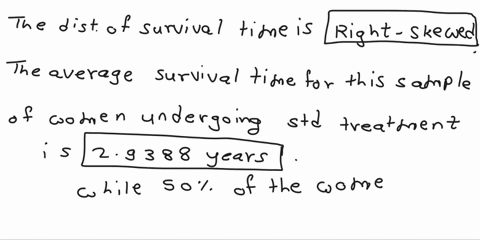 The dist. of survival time is Right-skewed.
The average survival time for this sample
of women undergoing std treatment
is 2.9388 years.
while 50% of the wome